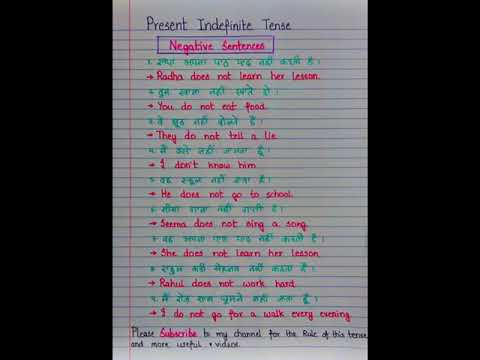 Present Indefinite Tense
Negative Sentences
१. राधा अपना पाठ याद नहीं करती है।
→ Radha does not learn her lesson.
२. तुम खाना नहीं खाते हो।
→ You do not eat food.
३. वे झूठ नहीं बोलते हैं।
→ They do not tell a lie
४. मैं उसे नहीं जानता हूँ।
→ I don't know him
५. वह स्कूल नहीं जाता है।
→ He does not go to school.
६. सीमा गाना नहीं गाती है।
→ Seema does not sing a song.
७. वह अपना पाठ याद नहीं करती है।
→ She does not learn her lesson
८. राहुल कड़ी मेहनत नहीं करता है।
→ Rahul does not work hard.
९. मैं रोज शाम घूमने नहीं जाता हूँ।
→ I do not go for a walk every evening
Please Subscribe to my channel for the Rule of this tense
and more useful videos.